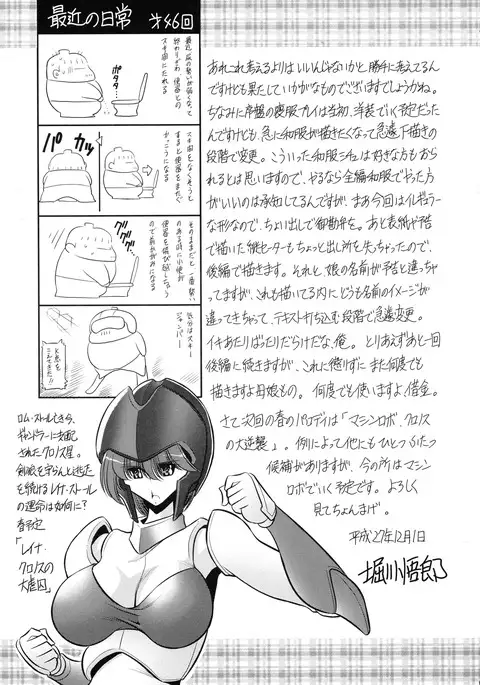 最近の日常　第46回
最近尿の勢いが弱くなって
終わりぎわ便器との
スキ間にたれる
ポタタ…
スキ間をなくそうと
すると便器をまたぐ
かっこうになる
カッ
パ
そのままだと一番勢い
のある時に小便が
便器を飛び越しちゃう
ので前かがみになる
グググ
気分はスキー
ジャンパー
あれこれ考えるよりはいいんじゃないかと勝手に考えてるん
ですけども果たしていかがなものでございますでしょうかね。
ちなみに序盤の喪服プレイは当初、洋装でいく予定だった
んですけども、急に和服が描きたくなって急遽下描きの
段階で変更。こういった和服シチュは好きな方もおら
れるとは思いますので、やるなら全編和服でやった方
がいいのは承知してるんですが、まあ今回はイレギュラー
な形なので、ちょい出しで御勘弁を。あと表紙や予告
で描いた縦セーターもちょっと出し所を失っちゃったので、
後編で描きます。それと、娘の名前が予告と違っちゃ
ってますが、これも描いてる内にどうも名前のイメージが
違ってきちゃって、テキスト打ち込む段階で急遽変更。
イキあたりばったりだらけだな、俺。とりあえずあと一回
後編に続きますが、これに懲りずにまた何度でも
描きますよ母娘もの。何度でも使いますよ、借金。
さて次回の春のパロディは「マシンロボ　クロノス
の大逆襲」。例によって他にもひとつふたつ
候補がありますが、今の所はマシン
ロボでいく予定です。よろしく
見てちょんまげ。
平成27年12月1日
堀川悟郎
ロム・ストール亡き後、
ギャンドラーに支配
されたクロノス星。
剣狼を守らんと逃走
を続けるレイナ・ストール
の運命は如何に？
春予定
「レイナ
クロノスの
大虐囚」